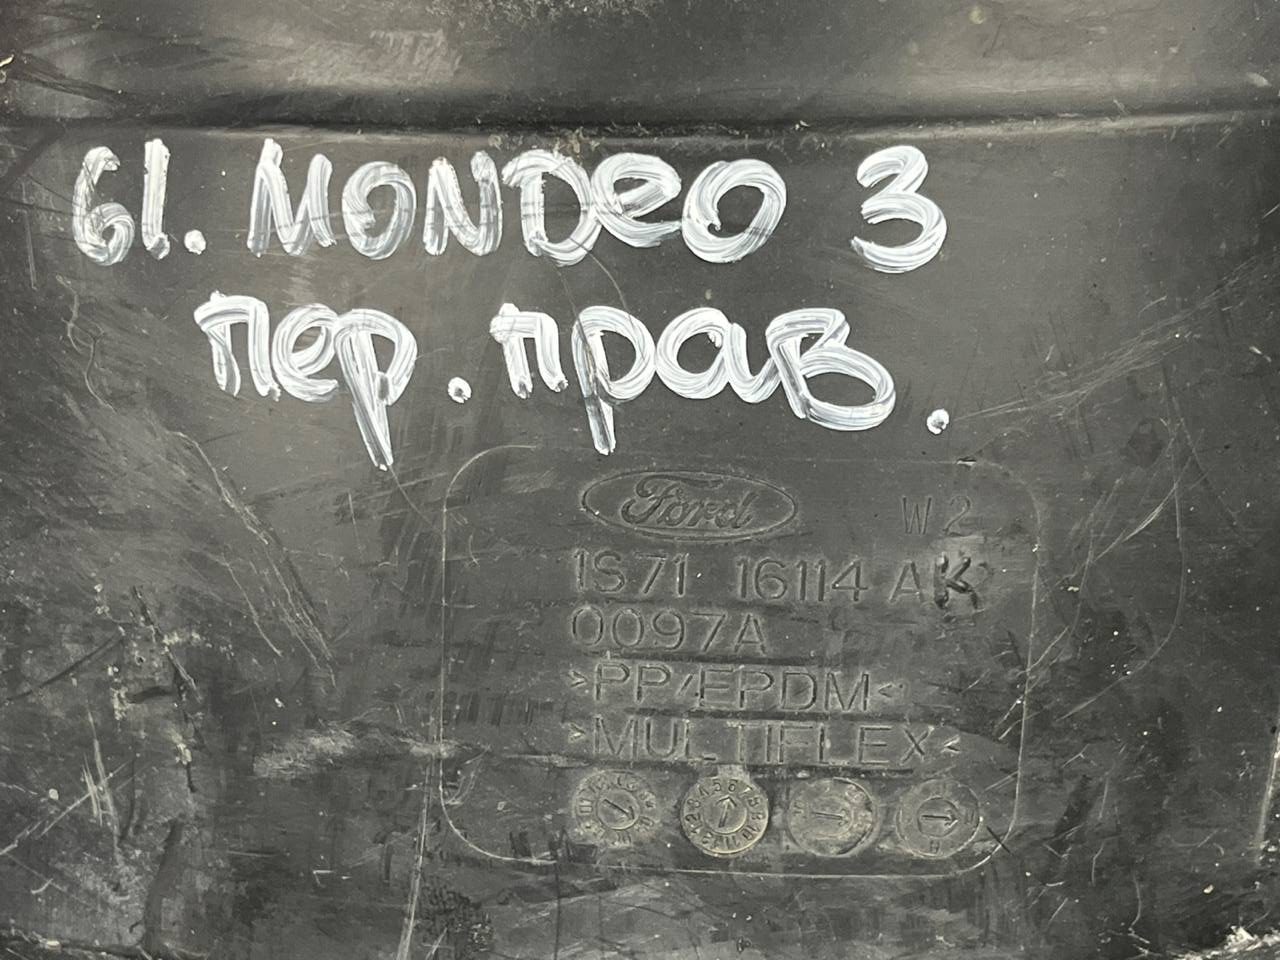 61. MONDEO 3
пер. прав.
Ford
W2
1S71 16114 AK
0097A
>PP/EPDM<
>MULTIFLEX<